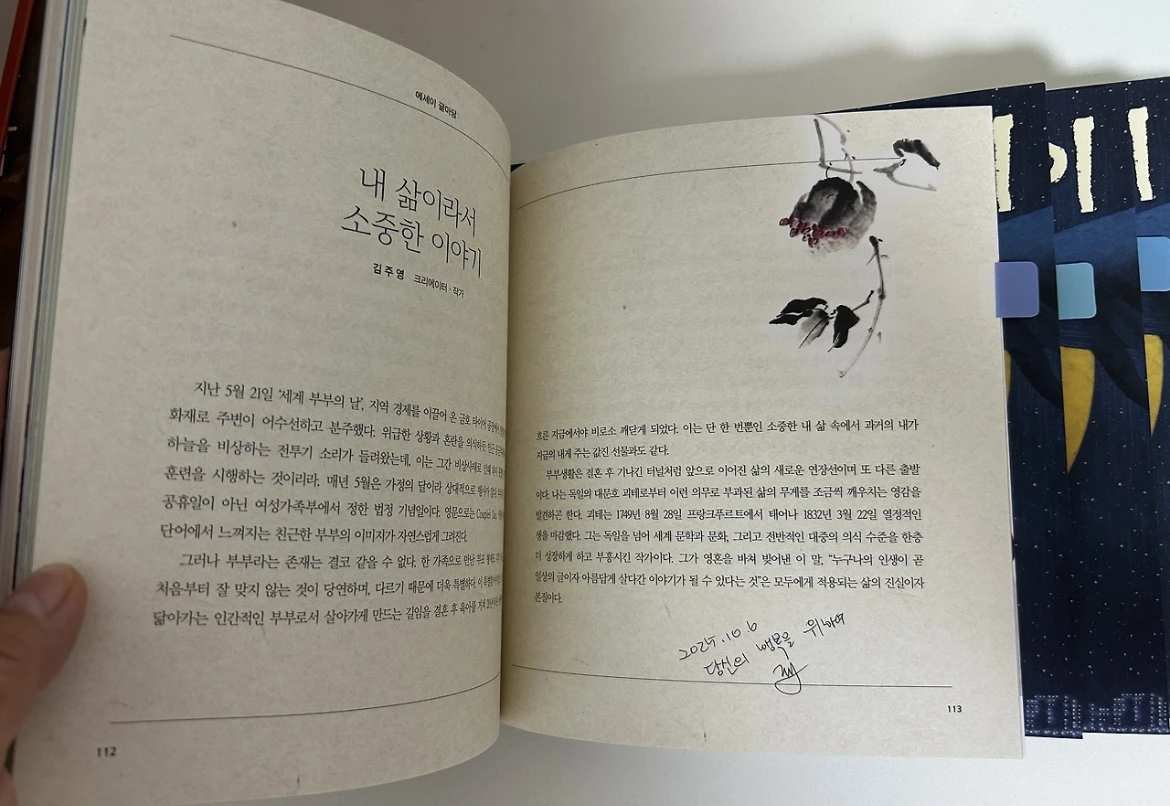 에세이 글마당
내 삶이라서
소중한 이야기
김주영 크리에이터·작가
지난 5월 21일 '세계 부부의 날', 지역 경제를 이끌어 온 금호 타이어
화재로 주변이 어수선하고 분주했다. 위급한 상황과 혼란을 의식하듯
하늘을 비상하는 전투기 소리가 들려왔는데, 이는 그간 비상사태로
훈련을 시행하는 것이리라. 매년 5월은 가정의 달이라 상대적으로
공휴일이 아닌 여성가족부에서 정한 법정 기념일이다. 영문으로는
단어에서 느껴지는 친근한 부부의 이미지가 자연스럽게 그려진다.
그러나 부부라는 존재는 결코 같을 수 없다. 한 가족으로 만난
처음부터 잘 맞지 않는 것이 당연하며, 다르기 때문에 더욱 특별하다.
닮아가는 인간적인 부부로서 살아가게 만드는 길임을 결혼 후 육아를
112
흐른 지금에서야 비로소 깨닫게 되었다. 이는 단 한 번뿐인 소중한 내 삶 속에서 과거의 내가
지금의 내게 주는 값진 선물과도 같다.
부부생활은 결혼 후 기나긴 터널처럼 앞으로 이어진 삶의 새로운 연장선이며 또 다른 출발
이다. 나는 독일의 대문호 괴테로부터 이런 의무로 부과된 삶의 무게를 조금씩 깨우치는 영감을
발견하곤 한다. 괴테는 1749년 8월 28일 프랑크푸르트에서 태어나 1832년 3월 22일 열정적인
생을 마감했다. 그는 독일을 넘어 세계 문학과 문화, 그리고 전반적인 대중의 의식 수준을 한층
더 성장하게 하고 부흥시킨 작가이다. 그가 영혼을 바쳐 빚어낸 이 말, "누구나의 인생이 곧
일상의 글이자 아름답게 살다간 이야기가 될 수 있다는 것"은 모두에게 적용되는 삶의 진실이자
본질이다.
2025.10.6
당신의 행복을 위하여
113